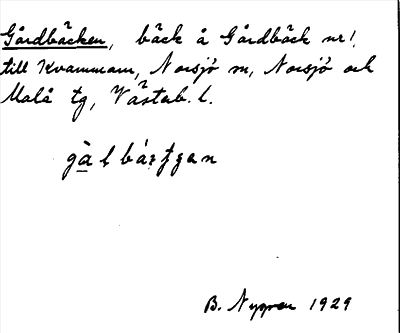 Gårdbäcken, bäck å Gårdbäck nr 1,
till Kvammarn, Norsjö sn, Norsjö och
Malå tg, Västerb. l.
B. Nygren 1929